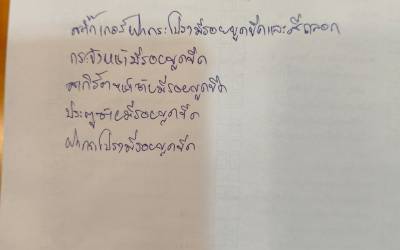 สติ๊กเกอร์ฝากระโปรงมีรอยขูดขีดและสีถลอก
กระจังหน้ามีรอยขูดขีด
สเกิร์ตหน้าซ้ายมีรอยขูดขีด
ประตูซ้ายมีรอยขูดขีด
ฝากระโปรงมีรอยขูดขีด